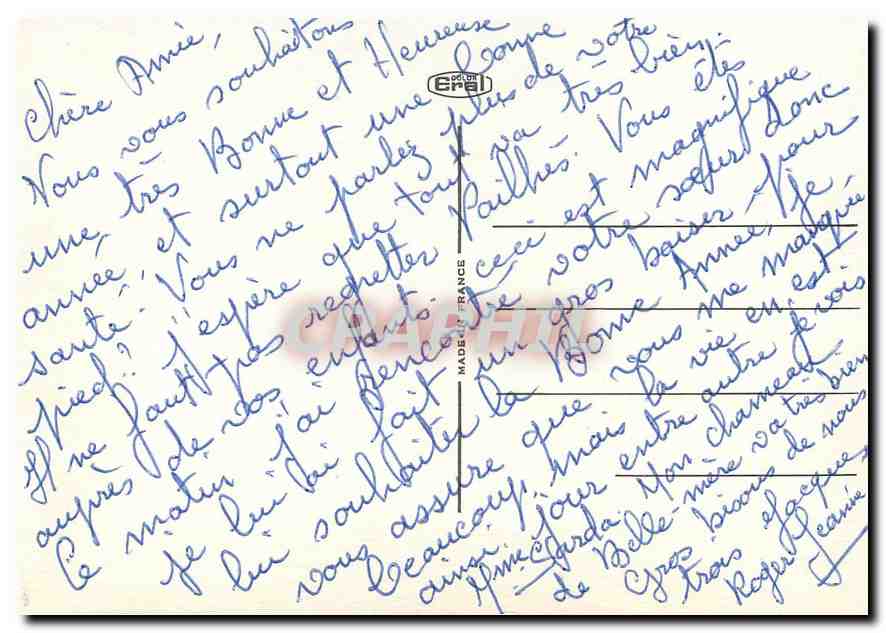 Chère Amie,
Nous vous souhaitons
une très Bonne et Heureuse
année et surtout une bonne
santé. Vous ne parlez plus de votre
pied? J'espère que tout va très bien.
Il ne faut pas regretter Pailhés. Vous êtes
auprès de vos enfants. ceci est magnifique
Ce matin j'ai rencontré votre sœur donc
je lui ai fait un gros baiser, pour
lui souhaiter la Bonne Année, je
vous assure que vous me manquez
beaucoup, mais la vie en est
ainsi. Jour entre autre je vois
Mme Sarda. Mon chameau
de Belle-mère va très bien
Gros bisous de nous
trois Jacques
Roger Jeanine
COLOR
Eral
MADE IN FRANCE
CPAPHIL